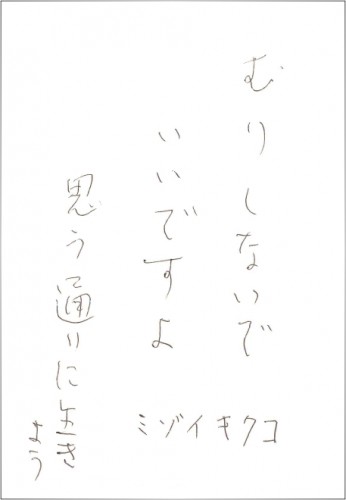 むりしないで
いいですよ
思う通りに生き
よう
ミゾイキクコ